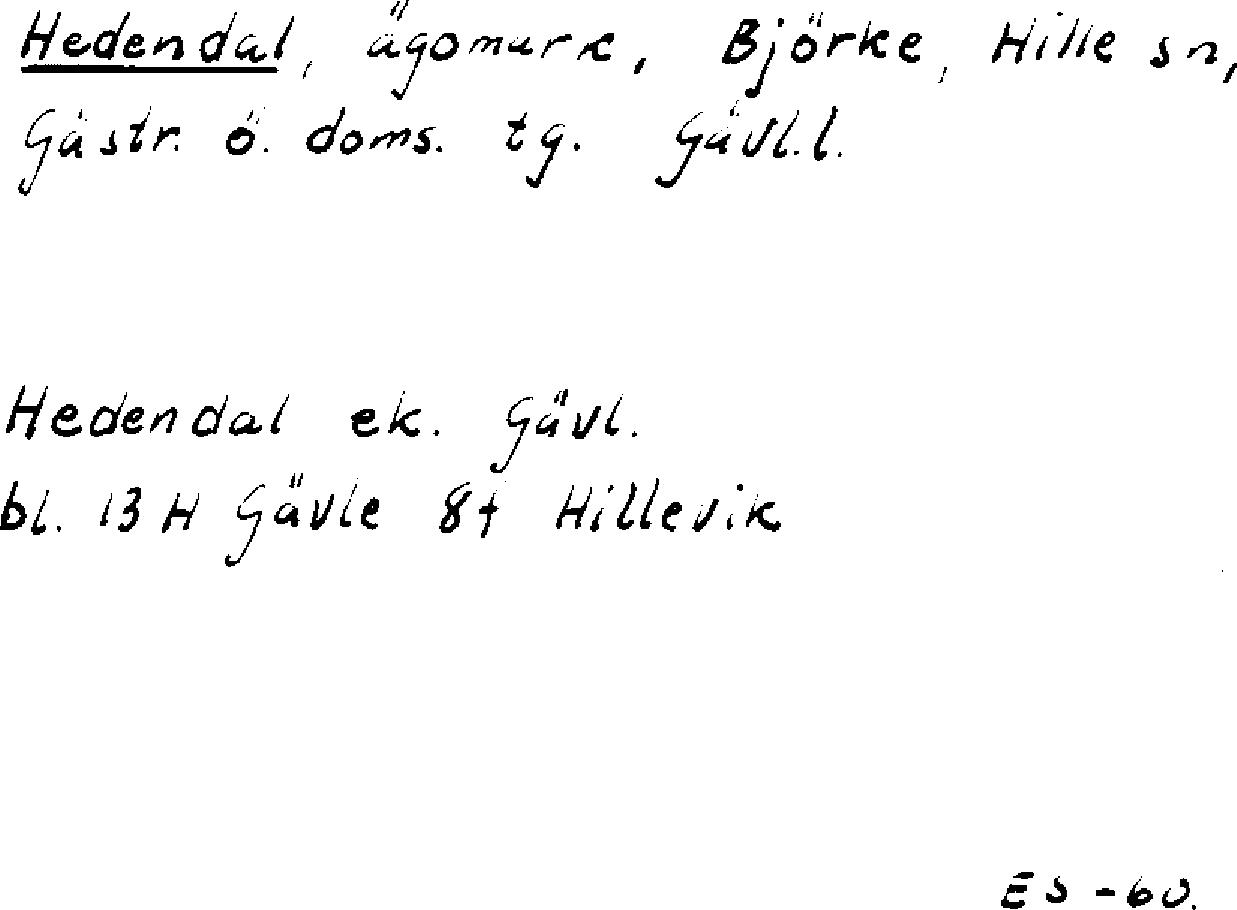 Hedendal, ägomark, Björke, Hille sn,
Gästr. ö. doms. tg. Gävl.l.
Hedendal ek. Gävl.
bl. 13 H Gävle 8f Hillevik
ES -60.